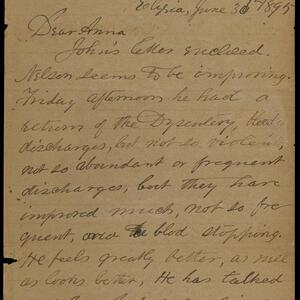 Elyria, June 30th 1895
Dear Anna
John's letter enclosed.
Nelson seems to be improving.
Friday afternoon he had a
return of the Dysentery, blood
discharges, but not so violent,
not so abundant or frequent
discharges, but they have
improved much, not so fre
quent, and blod stopping.
He feels greatly better, as well
as looks better, He has talked